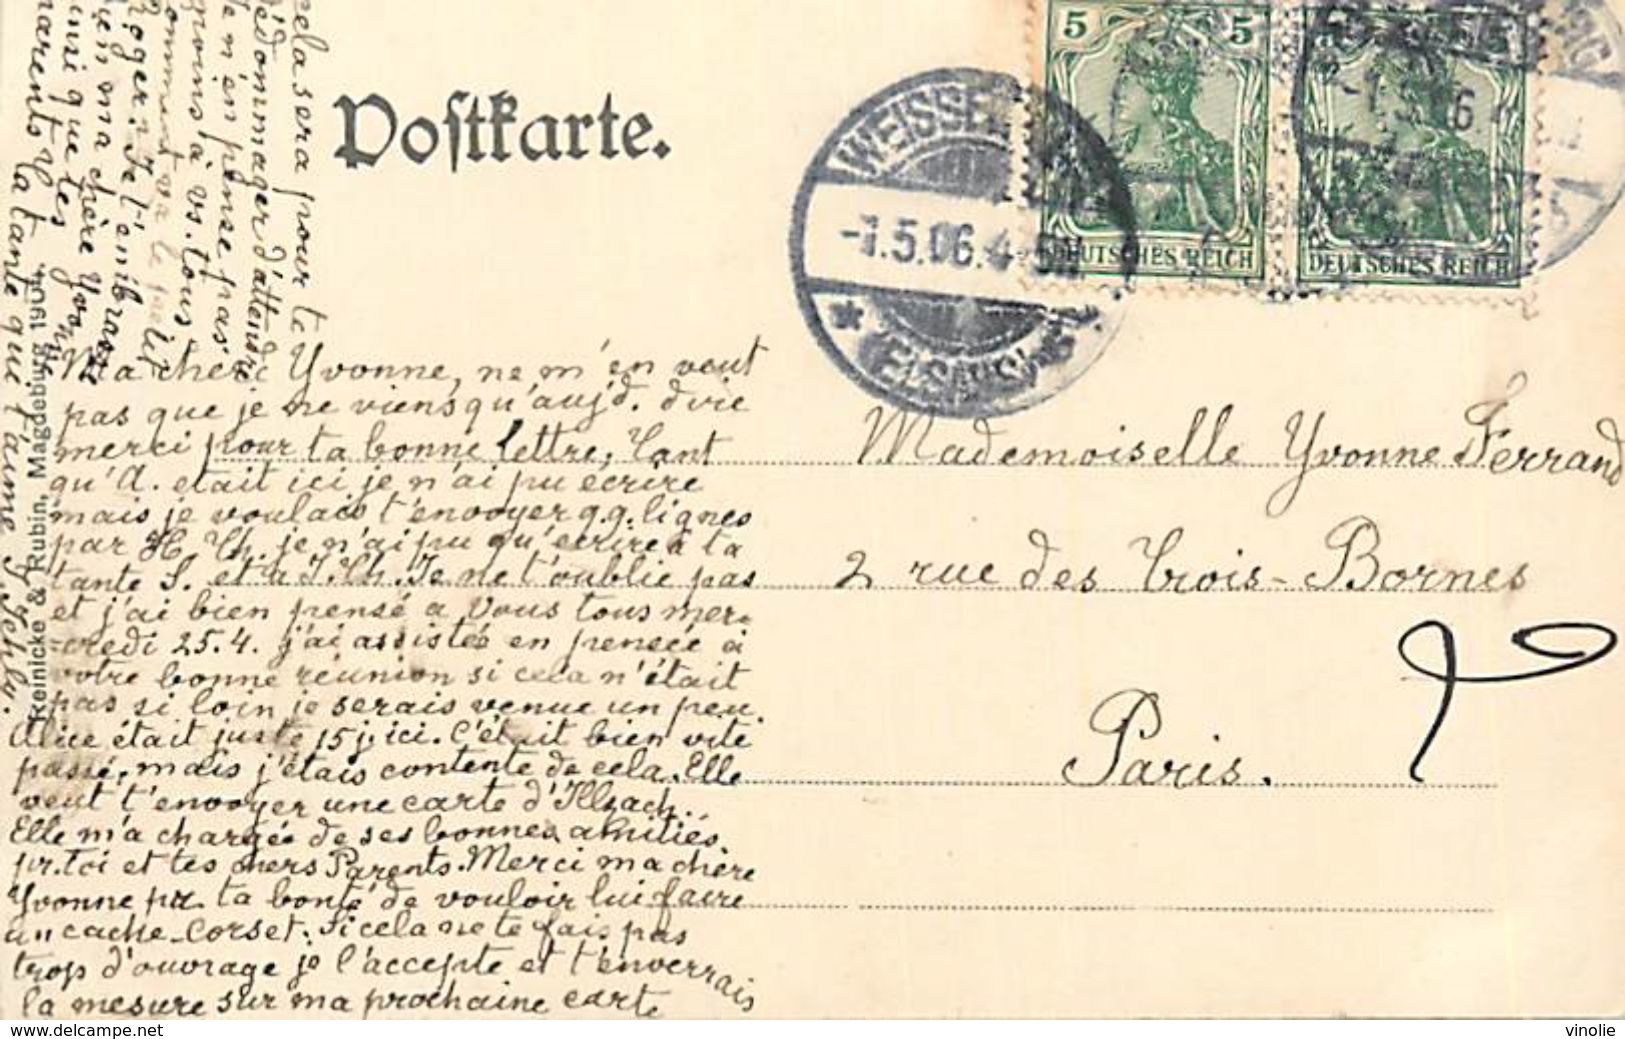 Postkarte.
5 5
DEUTSCHES REICH
DEUTSCHES REICH
-1.5.06.4-5N
Ma chere Yvonne, ne m'en veut
pas que je ne viens qu'aujd. dvie
merci pour ta bonne lettre, Tant
qu'A. etait ici je n'ai pu ecrire
mais je voulais t'envoyer q.q. lignes
par H. Th. je n'ai pu qu'ecrire à ta
tante S. et a T. Th. Je ne t'oublie pas
et j'ai bien pensé a Vous tous mer-
=credi 25.4. j'ai assistée en pensée à
votre bonne réunion si cela n'était
pas si loin je serais venue un peu.
Alice était juste 15 j. ici. C'était bien vite
passé, mais j'étais contente de cela. Elle
veut t'envoyer une carte d'Illzach.
Elle m'a chargée de ses bonnes amitiés.
pr. Toi et tes chers Parents. Merci ma chère
Yvonne pr. ta bonté de vouloir lui faire
un cache-corset. Si cela ne te fais pas
trop d'ouvrage je l'accepte et t'enverrais
la mesure sur ma prochaine carte
cela sera pour te
dédommager d'attendre
Je n'en pense pas
moins à vs. tous
comment va le petit
Roger? Je t'embrasse
bien ma chère Yvonne
ainsi que tes
parents Ta tante qui t'aime
Reinicke & Rubin, Magdeburg 1904
Mademoiselle Yvonne Ferrand
2 rue des Trois-Bornes
Paris.
www.delcampe.net
vinolie